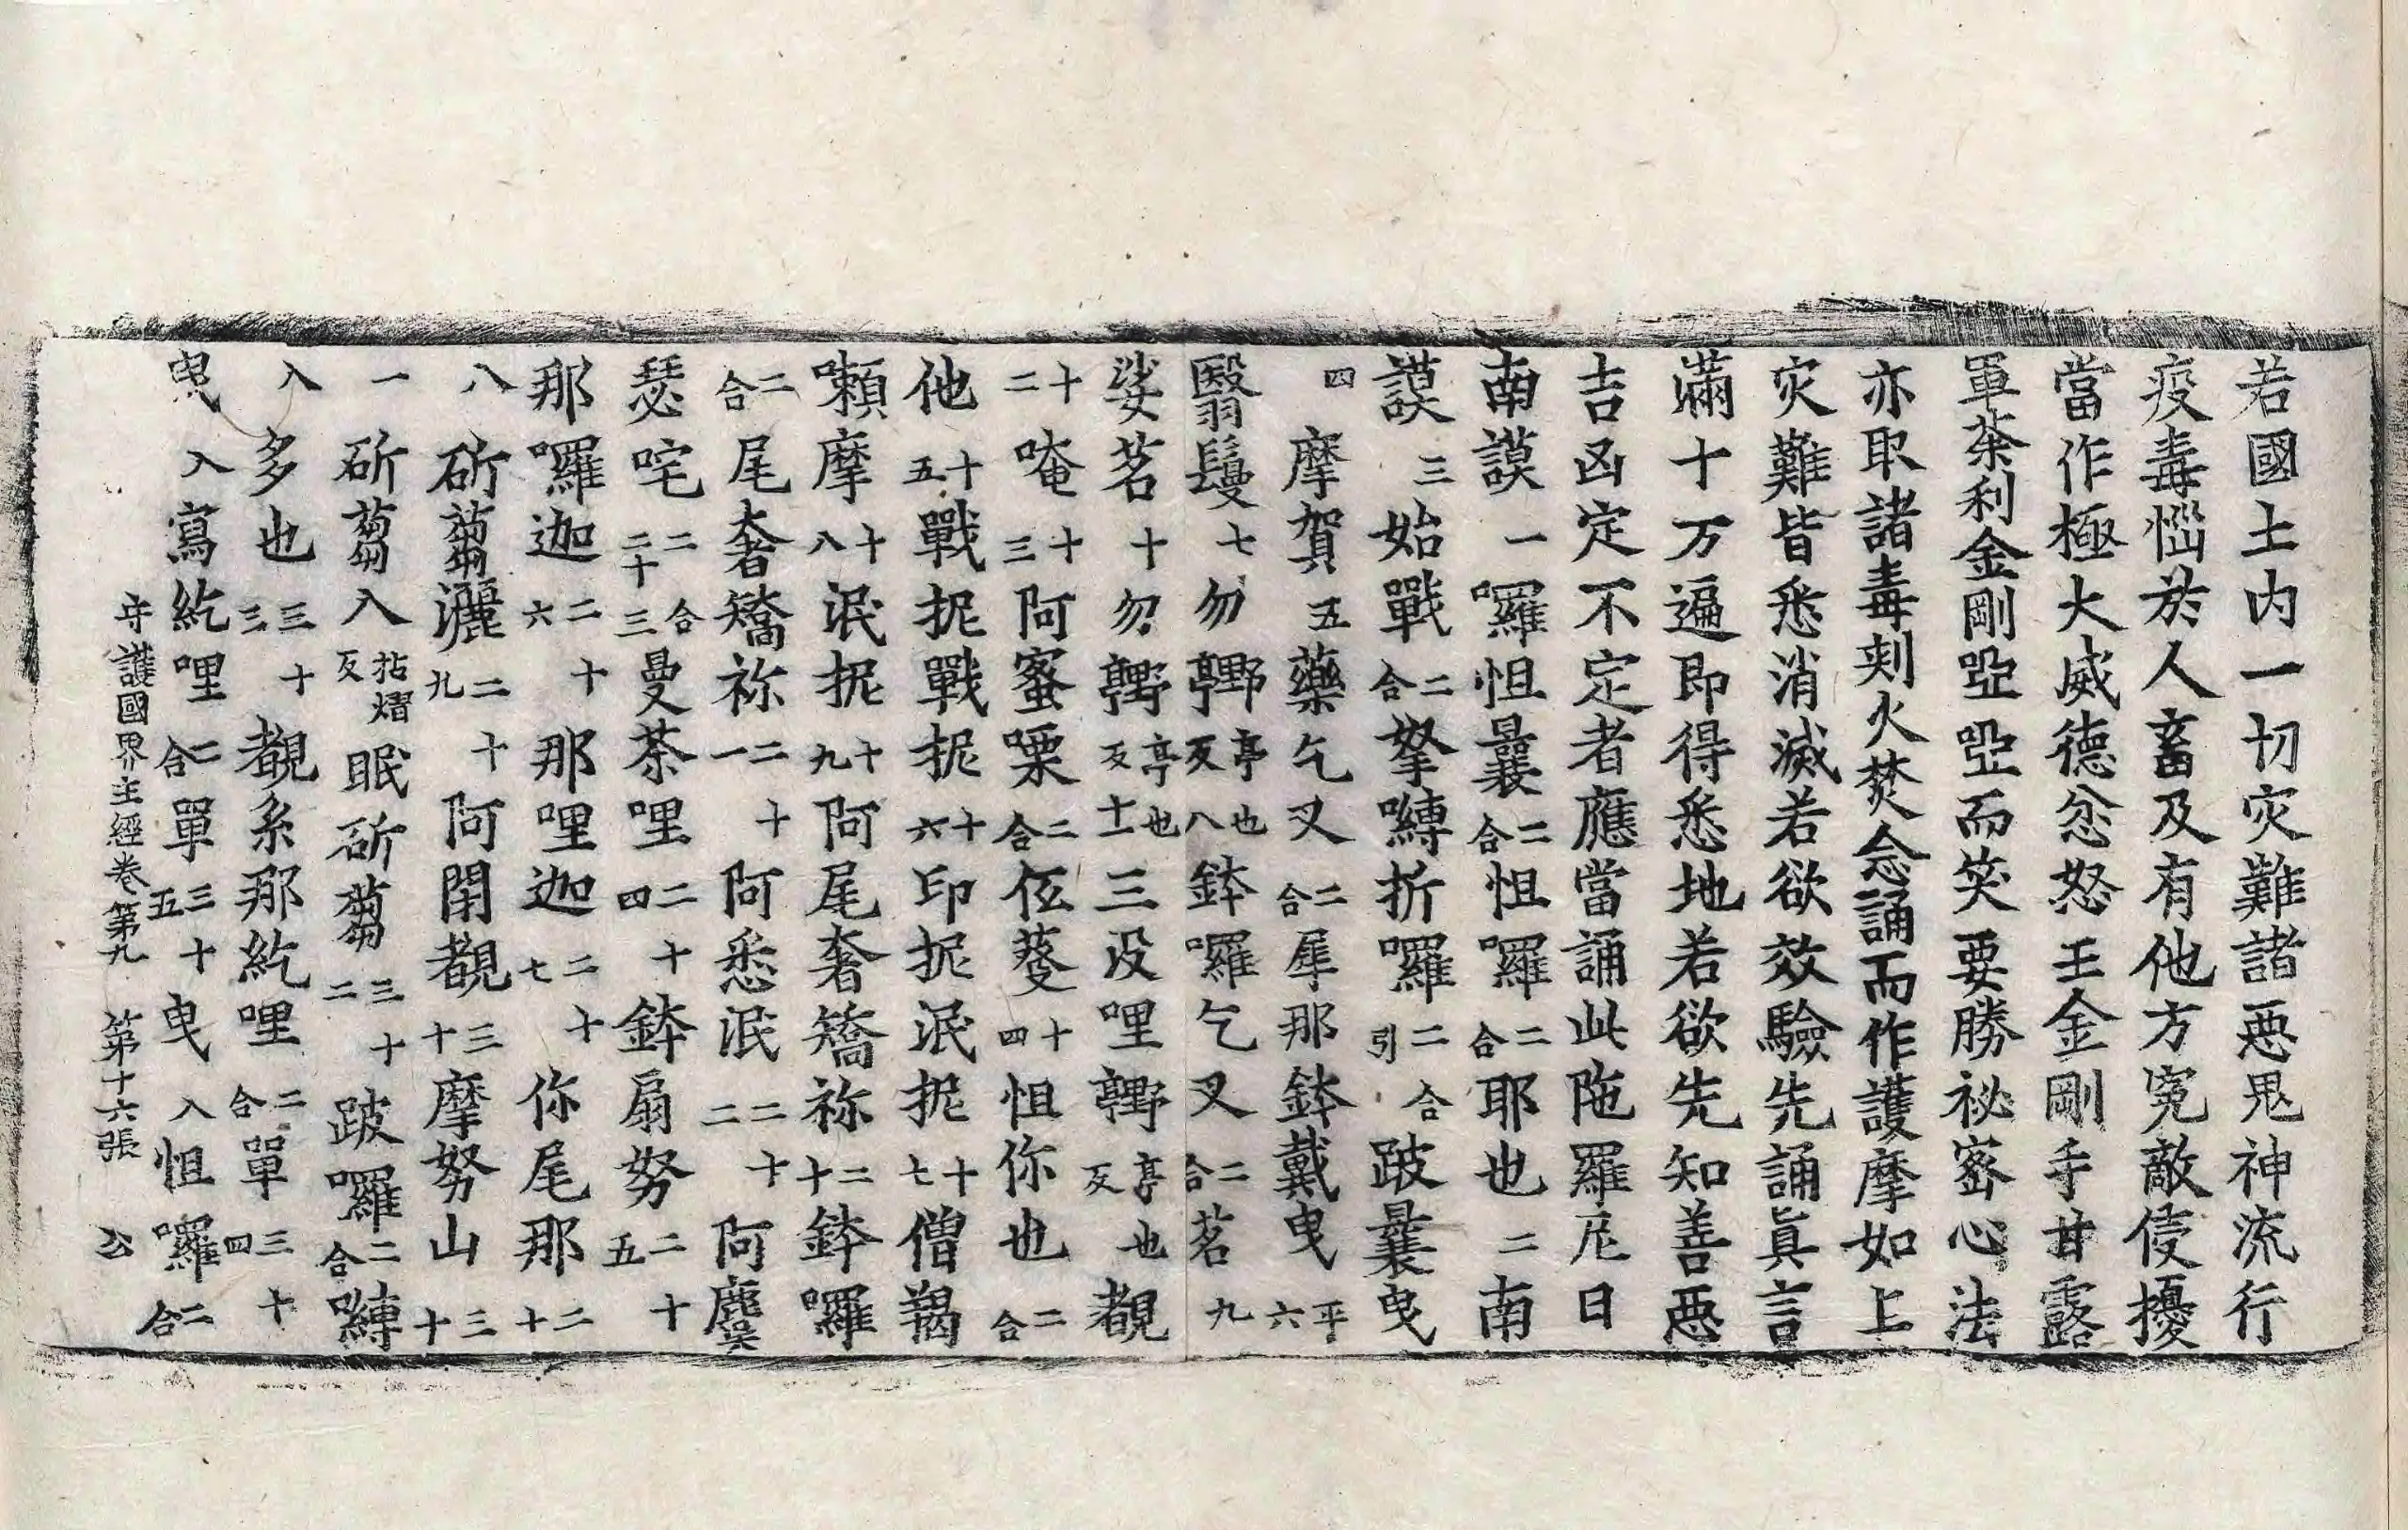 若國土内一切灾難諸惡鬼神流行
疫毒惱於人畜及有他方寃敵侵擾
當作極大威德忿怒王金剛手甘露
軍荼利金剛啞啞而笑要勝祕密心法
亦取諸毒刾火焚念誦而作護摩如上
灾難皆悉消滅若欲效驗先誦眞言
滿十万遍即得悉地若欲先知善惡
吉凶定不定者應當誦此陁羅尼曰
南謨一囉怛曩二合怛囉二合耶也二南
謨三始戰二合拏嚩折囉二合引跛曩曳
四摩賀五藥乞叉二合犀那鉢戴曳平六
翳鬘七勿嚲亭也反八鉢囉乞叉二合茗九
娑茗十勿嚲亭也反十一三没哩嚲亭也反覩
十二唵十三阿蜜㗚二合伍蔓十四怛你也二合
他十五戰抳戰抳十六印抳泯抳十七僧羯
嬾摩十八泯抳十九阿尾奢矯祢二十鉢囉
二合尾奢矯祢二十一阿悉泯二十二阿麌
瑟咤二合二十三曼荼哩二十四鉢扇努二十五
那囉迦二十六那哩迦二十七你尾那二十
八斫蒭灑二十九阿閇覩三十摩努山三十
一斫蒭入拈熠反眠斫蒭三十二跛囉二合嚩
入多也三十三覩系那紇哩二合單三十四
曳入寫紇哩二合單三十五曳入怛囉二合
守護國界主經卷第九 第十六張 公